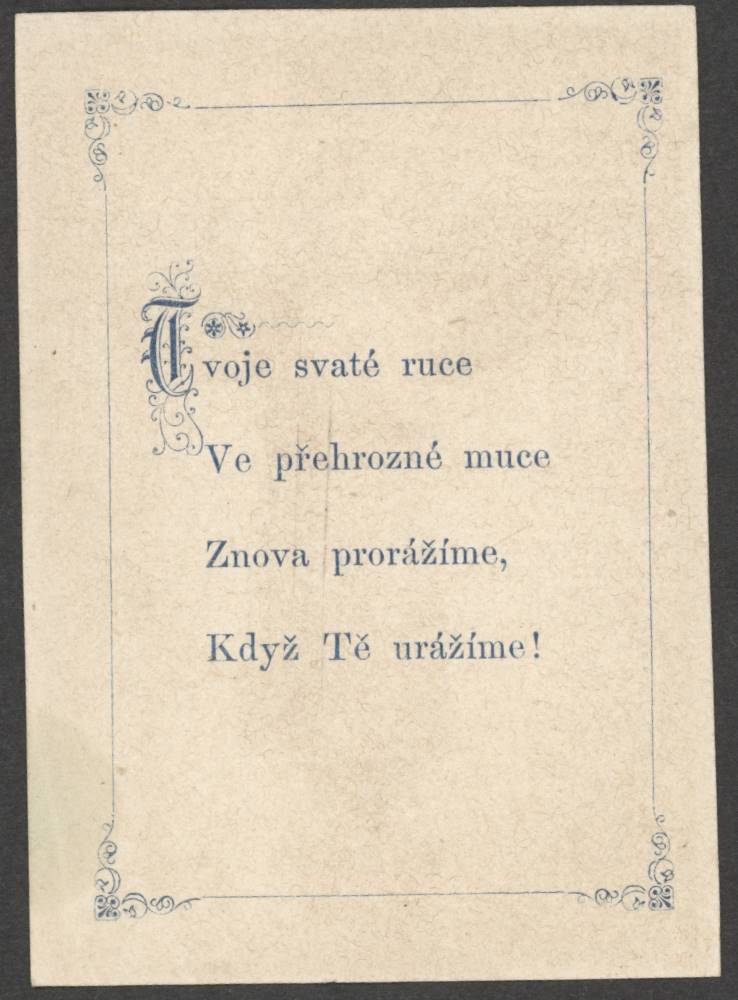 Tvoje svaté ruce
Ve přehrozné muce
Znova prorážíme,
Když Tě urážíme!